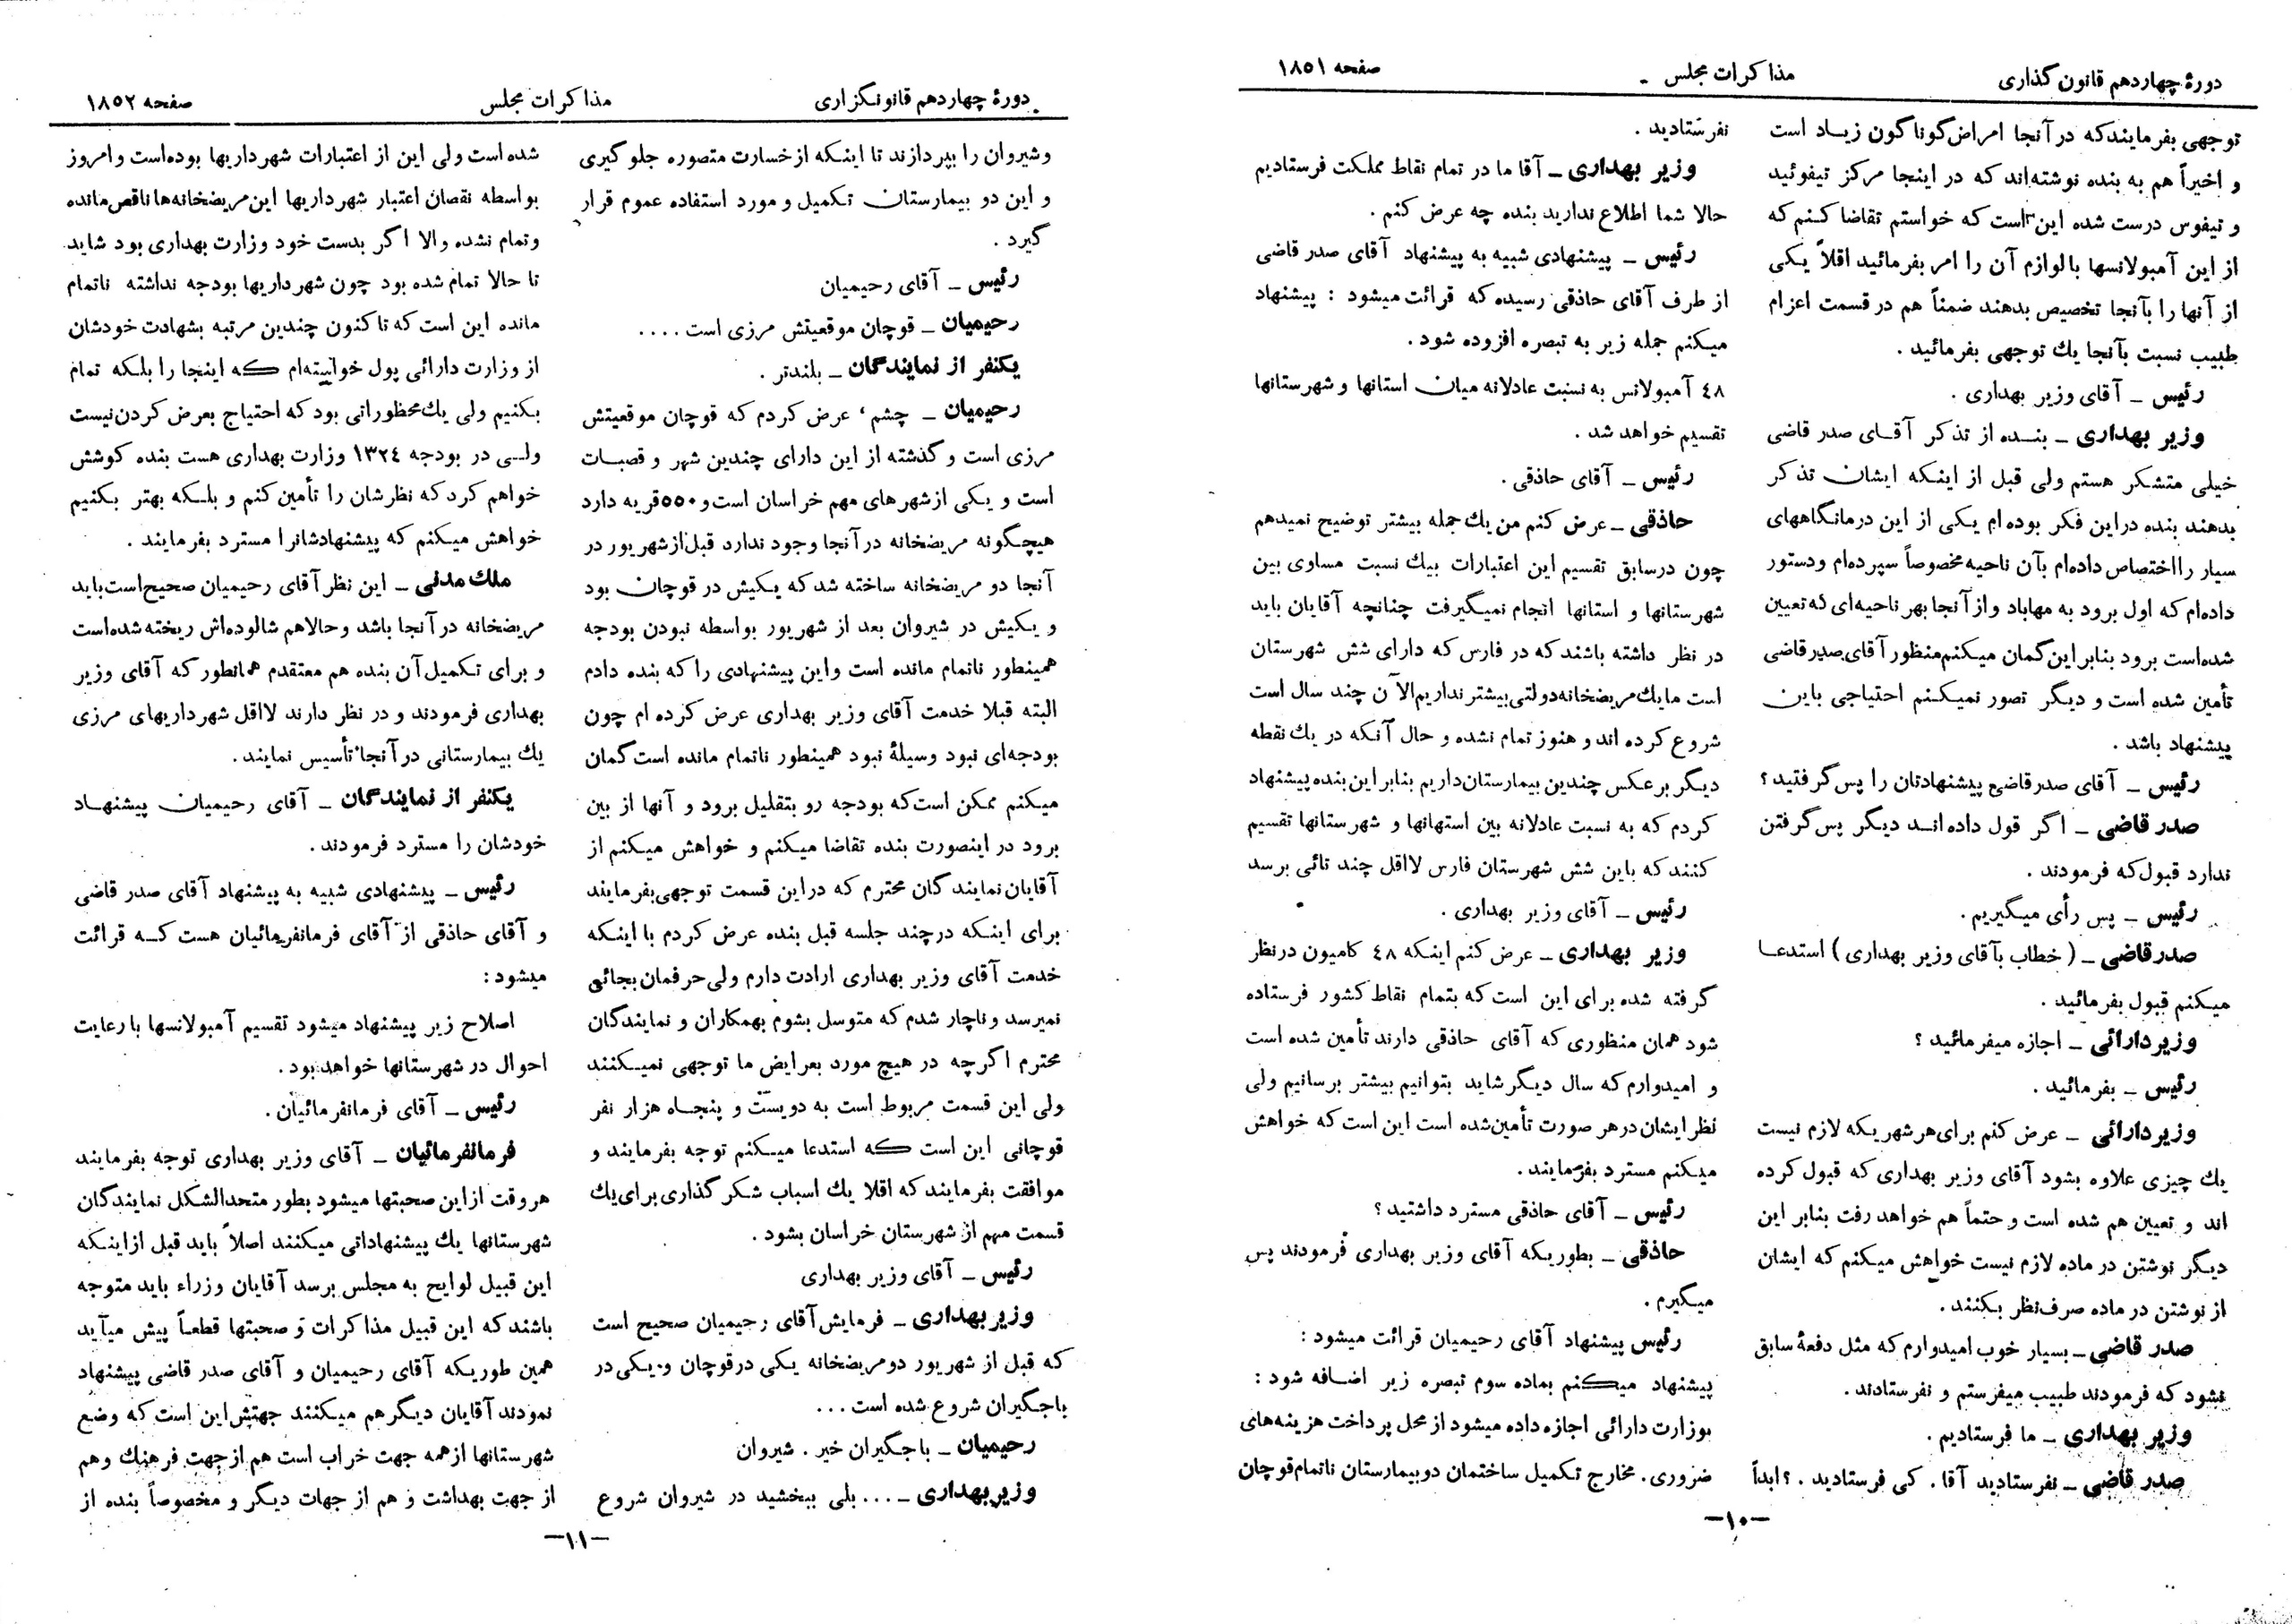 دورهٔ چهاردهم قانون گذاری
مذاکرات مجلس
صفحه ۱۸۵۱
توجهی بفرمایندکه در آنجا امراض گوناگون زیـاد است
و اخیراً هم به بنده نوشته‌اند که در اینجا مرکز تیفوئید
و تیفوس درست شده این است که خواستم تقاضا کـنم که
از این آمبولانسها با لوازم آن را امر بفرمائید اقلاً یکی
از آنها را بآنجا تخصیص بدهند ضمناً هم در قسمت اعزام
طبیب نسبت بآنجا یك توجهی بفرمائید .
رئیس ـ آقای وزیر بهداری .
وزیر بهداری ـ بنـده از تذکر آقـای صدر قاضی
خیلی متشکر هستم ولی قبل از اینکه ایشان تذکر
بدهند بنده دراین فکر بوده ام یکی از این درمانگاههای
سیار را اختصاص داده‌ام بآن ناحیه مخصوصاً سپرده‌ام ودستور
داده‌ام که اول برود به مهاباد و از آنجا بهر ناحیه‌ای که تعیین
شده‌است برود بنابر این گمان میکنم منظور آقای صدر قاضی
تأمین شده است و دیگر تصور نمیکـنم احتیاجی باین
پیشنهاد باشد .
رئیس ـ آقای صدر قاضی پیشنهادتان را پس گرفتید ؟
صدر قاضی ـ اگر قول داده انـد دیگر پس گرفتن
ندارد قبول که فرمودند .
رئیس ـ پس رأی میگیریم .
صدر قاضی ـ ( خطاب بآقای وزیر بهداری ) استدعـا
میکنم قبول بفرمائید .
وزیر دارائی ـ اجازه میفرمائید ؟
رئیس ـ بفرمائید .
وزیر دارائی ـ عرض کنم برای هر شهریکه لازم نیست
یك چیزی علاوه بشود آقای وزیر بهداری که قبول کرده
اند و تعیین هم شده است و حتماً هم خواهد رفت بنابر این
دیگر نوشتن در ماده لازم نیست خواهش میکنم که ایشان
از نوشتن در ماده صرف‌نظر بکنند .
صدر قاضی ـ بسیار خوب امیدوارم که مثل دفعهٔ سابق
نشود که فرمودند طبیب میفرستم و نفرستادند .
وزیر بهداری ـ ما فرستادیم .
صدر قاضی ـ نفرستادید آقا . کی فرستادید . ؟ ابداً
نفرستادید .
وزیر بهداری ـ آقا ما در تمام نقاط مملکت فرستادیم
حالا شما اطلاع ندارید بنده چه عرض کنم .
رئیس ـ پیشنهادی شبیه به پیشنهاد آقای صدر قاضی
از طرف آقای حاذقی رسیده که قرائت میشود : پیشنهاد
میکنم جمله زیر به تبصره افزوده شود .
٤٨ آمبولانس به نسبت عادلانه میان استانها و شهرستانها
تقسیم خواهد شد .
رئیس ـ آقای حاذقی .
حاذقی ـ عرض کنم من یك جمله بیشتر توضیح نمیدهم
چون درسابق تقسیم این اعتبارات بیك نسبت مساوی بین
شهرستانها و استانها انجام نمیگیرفت چنانچه آقایان باید
در نظر داشته باشند که در فارس که دارای شش شهرستان
است ما یك مریضخانه دولتی بیشتر نداریم الآن چند سال است
شروع کرده اند و هنوز تمام نشده و حال آنکه در یك نقطه
دیگر برعکس چندین بیمارستان داریم بنابر این بنده پیشنهاد
کردم که به نسبت عادلانه بین استهانها و شهرستانها تقسیم
کنند که باین شش شهرستان فارس لااقل چند تائی برسد
رئیس ـ آقای وزیر بهداری .
وزیر بهداری ـ عرض کنم اینکه ٤٨ کامیون در نظر
گرفته شده برای این است که بتمام نقاط کشور فرستاده
شود همان منظوری که آقای حاذقی دارند تأمین شده است
و امیدوارم که سال دیگر شاید بتوانیم بیشتر برسانیم ولی
نظر ایشان در هر صورت تأمین شده است این است که خواهش
میکنم مسترد بفرمایند .
رئیس ـ آقای حاذقی مسترد داشتید ؟
حاذقی ـ بطوریکه آقای وزیر بهداری فرمودند پس
میگیرم .
رئیس پیشنهاد آقای رحیمیان قرائت میشود :
پیشنهاد میکنم بماده سوم تبصره زیر اضـافه شود :
بوزارت دارائی اجازه داده میشود از محل پرداخت هزینه‌های
ضروری . مخارج تکمیل ساختمان دو بیمارستان ناتمام قوچان
ـ۱۰ـ
دورهٔ چهاردهم قانونگزاری
مذاکرات مجلس
صفحه ۱۸۵۲
و شیروان را بپردازند تا اینکه از خسارت متصوره جلوگیری
و این دو بیمارستان تکمیل و مورد استفاده عموم قرار
گیرد .
رئیس ـ آقای رحیمیان
رحیمیان ـ قوچان موقعیتش مرزی است . . . .
یکنفر از نمایندگان ـ بلندتر .
رحیمیان ـ چشم ، عرض کردم که قوچان موقعیتش
مرزی است و گذشته از این دارای چندین شهر و قصبـات
است و یکی از شهرهای مهم خراسان است و ۵۵۰ قریه دارد
هیچگونه مریضخانه در آنجا وجود ندارد قبل از شهریور در
آنجا دو مریضخانه ساخته شد که یکیش در قوچان بود
و یکیش در شیروان بعد از شهریور بواسطه نبودن بودجه
همینطور ناتمام مانده است و این پیشنهادی را که بنده دادم
البته قبلا خدمت آقای وزیر بهداری عرض کرده ام چون
بودجه‌ای نبود وسیلهٔ نبود همینطور ناتمام مانده است گمان
میکنم ممکن است که بودجه رو بتقلیل برود و آنها از بین
برود در اینصورت بنده تقاضا میکنم و خواهش میکنم از
آقایان نمایندگان محترم که در این قسمت توجهی بفرمایند
برای اینکه در چند جلسه قبل بنده عرض کردم با اینکه
خدمت آقای وزیر بهداری ارادت دارم ولی حرفمان بجائی
نمیرسد و ناچار شدم که متوسل بشوم بهمکاران و نمایندگان
محترم اگرچه در هیچ مورد بعرایض ما توجهی نمیکنند
ولی این قسمت مربوط است به دویست و پنجاه هزار نفر
قوچانی این است که استدعا میکنم توجه بفرمایند و
موافقت بفرمایند که اقلا یك اسباب شکرگذاری برای یك
قسمت مهم از شهرستان خراسان بشود .
رئیس ـ آقای وزیر بهداری
وزیر بهداری ـ فرمایش آقای رحیمیان صحیح است
که قبل از شهریور دو مریضخانه یکی در قوچان و یکی در
باجگیران شروع شده است . . .
رحیمیان ـ باجگیران خیر . شیروان
وزیر بهداری ـ . . . بلی ببخشید در شیروان شروع
شده است ولی این از اعتبارات شهرداریها بوده‌است و امروز
بواسطه نقصان اعتبار شهرداریها این مریضخانه‌ها ناقص مانده
و تمام نشده والا اگر بدست خود وزارت بهداری بود شاید
تا حالا تمام شده بود چون شهرداریها بودجه نداشته ناتمام
مانده این است که تاکنون چندین مرتبه بشهادت خودشان
از وزارت دارائی پول خواسته‌ام که اینجا را بلکه تمام
بکنیم ولی یك محظوراتی بود که احتیاج بعرض کردن نیست
ولـی در بودجه ١٣٢٤ وزارت بهداری هست بنده کوشش
خواهم کرد که نظرشان را تأمین کنم و بلـکه بهتر بکنیم
خواهش میکنم که پیشنهادشانرا مسترد بفرمایند .
ملك مدنی ـ این نظر آقای رحیمیان صحیح است باید
مریضخانه در آنجا باشد و حالاهم شالوده‌اش ریخته شده‌است
و برای تکمیل آن بنده هم معتقدم همانطور که آقای وزیر
بهداری فرمودند و در نظر دارند لااقل شهرداریهای مرزی
یك بیمارستانی در آنجا تأسیس نمایند .
یکنفر از نمایندگان ـ آقای رحیمیان پیشنهـاد
خودشان را مسترد فرمودند .
رئیس ـ پیشنهادی شبیه به پیشنهاد آقای صدر قاضی
و آقای حاذقی از آقای فرمانفرمائیان هست کـه قرائت
میشود :
اصلاح زیر پیشنهاد میشود تقسیم آمبولانسها با رعایت
احوال در شهرستانها خواهد بود .
رئیس ـ آقای فرمانفرمائیان .
فرمانفرمائیان ـ آقای وزیر بهداری توجه بفرمایند
هر وقت از این صحبتها میشود بطور متحدالشکل نمایندگان
شهرستانها یك پیشنهاداتی میکنند اصلاً باید قبل از اینکه
این قبیل لوایح به مجلس برسد آقایان وزراء باید متوجه
باشند که این قبیل مذاکرات و صحبتها قطعـاً پیش میآید
همین طوریکه آقای رحیمیان و آقای صدر قاضی پیشنهاد
نمودند آقایان دیگر هم میکنند جهتش این است که وضع
شهرستانها از همه جهت خراب است هم از جهت فرهنك و هم
از جهت بهداشت و هم از جهات دیگر و مخصوصاً بنده از
ـ۱۱ـ